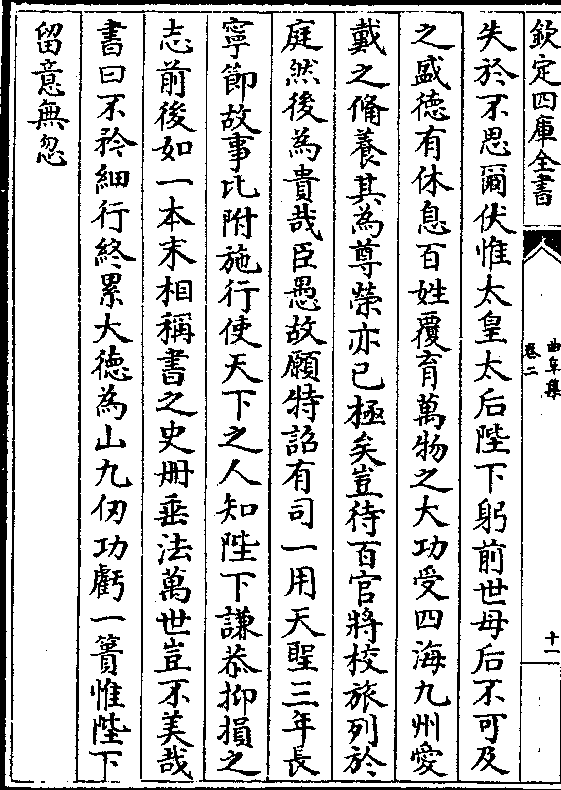 欽定四庫全書
曲阜集
卷二
十一
失於不思爾伏惟太皇太后陛下躬前世母后不可及
之盛德有休息百姓覆育萬物之大功受四海九州愛
戴之俻養其為尊榮亦已極矣豈待百官將校旅列於
庭然後為貴哉臣愚故願特詔有司一用天聖三年長
寧節故事比附施行使天下之人知陛下謙恭抑損之
志前後如一本末相稱書之史册垂法萬世豈不美哉
書曰不矜細行終累大德為山九仞功虧一簣惟陛下
留意無忽